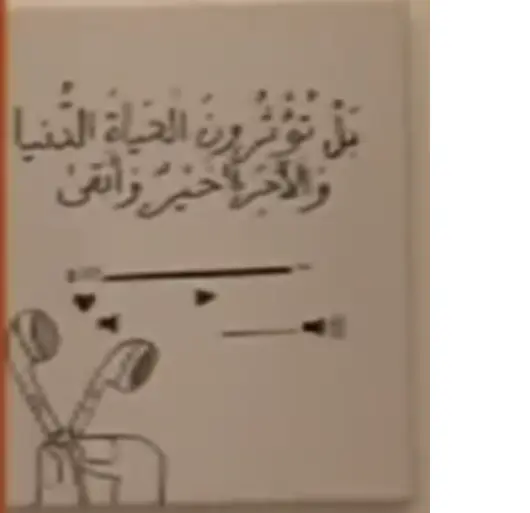 بَلْ تُؤْثِرُونَ الْحَيَاةَ الدُّنْيَا
وَالْآخِرَةُ خَيْرٌ وَأَبْقَىٰ